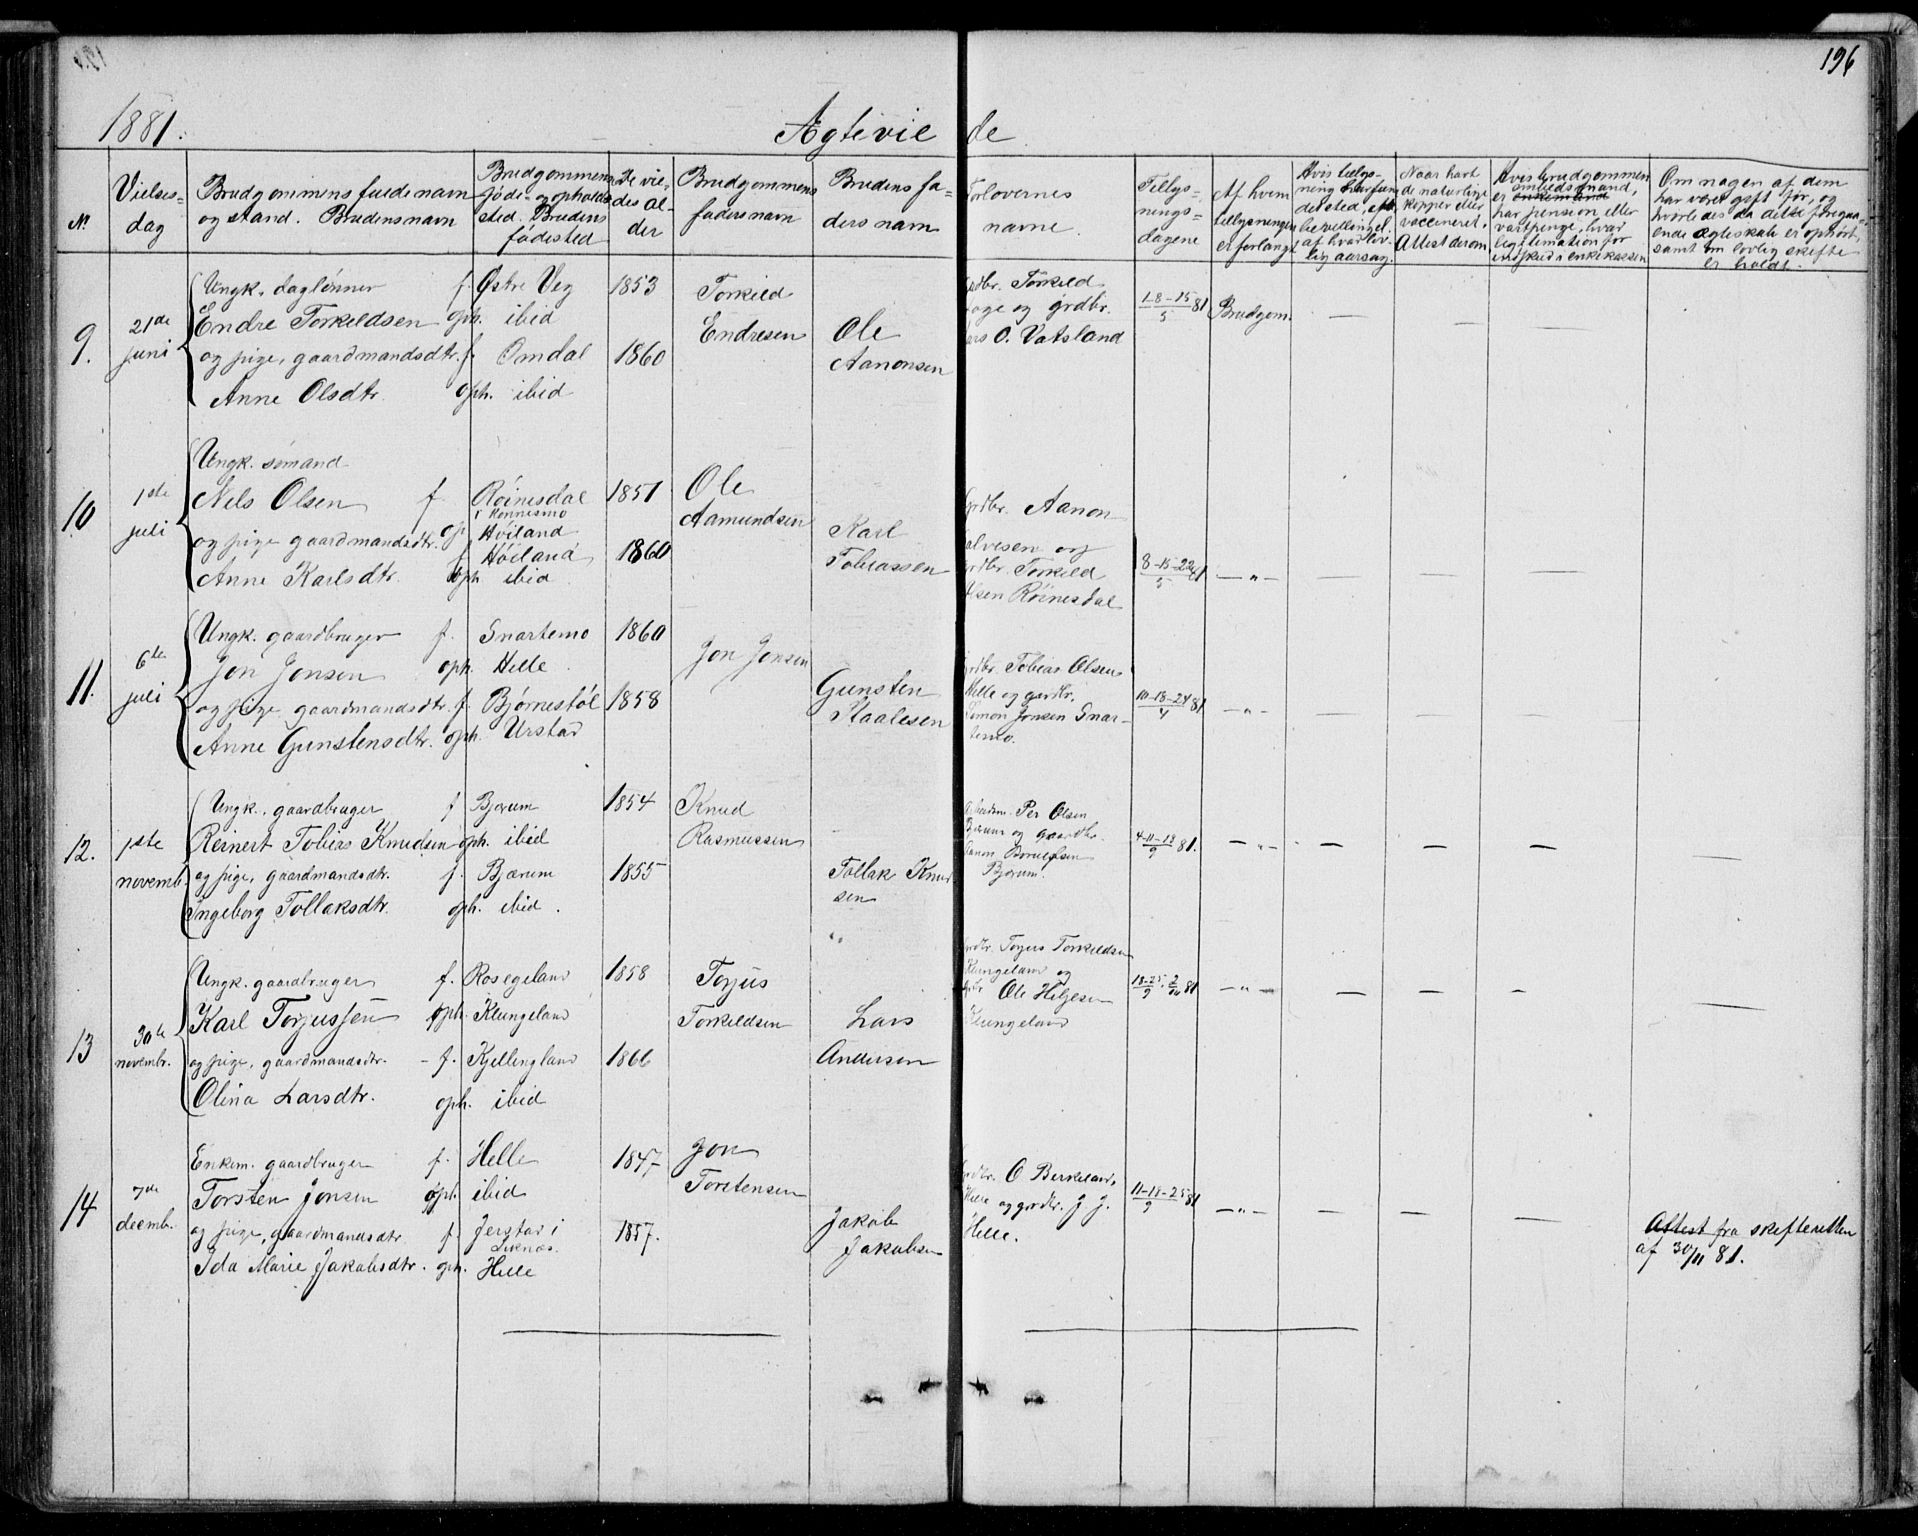 196
1881.
Ægtevie de
No.
Vielses-
dag
Brudgommens fulde navn
og stand. Brudens navn
Brudgommens
føde- og opholds-
sted. Brudens
fødested
De vie-
des al-
der
Brudgommens
faders navn
Brudens fa-
ders navn
Forlovernes
navne.
Tillys-
nings-
dagene
Af hvem
tillysningen
er forlangt
Hvis tillys-
ning har fun-
det sted, eft.
bevillinge,
af hvad lov-
lig aarsag.
Naar havt
de naturlige
kopper eller
vaccineret.
Attest derom
Hvis brudgommen
er embedsmand,
enkemand
har pension eller
vartpenge, hvor
legitimation for
indskud i enkekassen
Om nogen af dem
har været gift før, og
hvorledes da dette foregaa-
ende ægteskab er ophørt,
samt om lovlig skifte
er holdt.
9.
21de
juni
Ungk. daglønner f. Østre Veg 1853
Endre Torkildsen oph. ibid
og pige, gaardmandsdtr. f. Omdal 1860
Anne Olsdtr. oph. ibid
Torkild
Endresen
Ole
Aanonsen
grdbr. Torkild
og grdbr.
O. Vatsland
1-8-15/5 81
Brudgom.
10
1ste
juli
Ungk. sømand
Nels Olsen f. Røinesdal 1851
i Konnesmo
op Høiland
og pige gaardmandsdtr. f Høiland 1860
Anne Karlsdtr. oph ibid
Ole
Aamundsen
Karl
Tobiassen
grdbr. Aanon
alvesen og
grdbr. Torkild
Olsen Røinesdal
8-15-22/5 81
— " —
11.
6te
juli
Ungk. gaardbruger f. Snartemo 1860
Jon Jonsen oph. Helle
og pige gaardmandsdtr. f. Bjørnestøl 1858
Anne Gunstensdtr. oph. Urstad
Jon Jonsen
Gunsten
Staalesen
grdbr. Tobias Olsen
Helle og gardbr.
Simon Jonsen Snar-
temo.
10-18-24/4 81
— " —
12.
1ste
novemb.
Ungk. gaardbruger f Bjærum 1854
Reinert Tobias Knudsen oph. ibid
og pige, gaardmandsdtr. f. Bjærum 1855
Ingeborg Tollaksdtr. oph. ibid.
Knud
Rasmussen
Tollak Knud
sen
Per Olsen
Bjærum og gaardbr.
Aanon
Bjærum.
4-11-18/9 81.
— " —
13
30te
novembr.
Ungk. gaardbruger f. Rosegeland 1858
Karl Torjussen oph. Klungeland
og pige, gaardmandsdtr. - f. Kjellingland 1866
Olina Larsdtr. oph. ibid
Torjus
Torkildsen
Lars
Andersen
grdbr. Torjus Torkildsen
Klungeland og
grbr Ole Helgesen
Klungeland
18-25/9 2/10 81
— " —
14
7de
decemb.
Enkem. gaardbruger f. Helle 1847
Torsten Jonsen oph. ibid
og pige, gaardmandsdtr. f. Jerstad i 1857.
Liknæs.
Ida Marie Jakobsdtr. oph. Helle
Jon
Torstensen
Jakob
Jakobsen
grdbr. O Berkeland,
Helle og grdbr. J. J.
Helle.
11-18-25/9 81
— " —
Attest fra skifteretten
af 30/11 81.